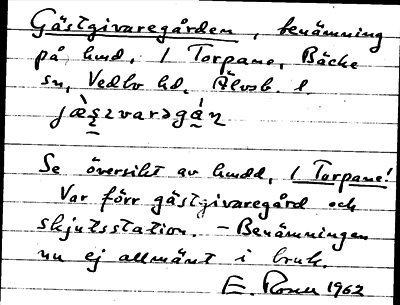 Gästgivaregården, benämning
på hmd. 1 Torpane, Bäcke
sn, Vedbo hd, Älvsb. l.
jæ̀s̱ɪvarəgán̥
Se översikt av hmdd, 1 Torpane!
Var förr gästgivaregård och
skjutsstation. – Benämningen
nu ej allmänt i bruk.
E. Rosell 1962